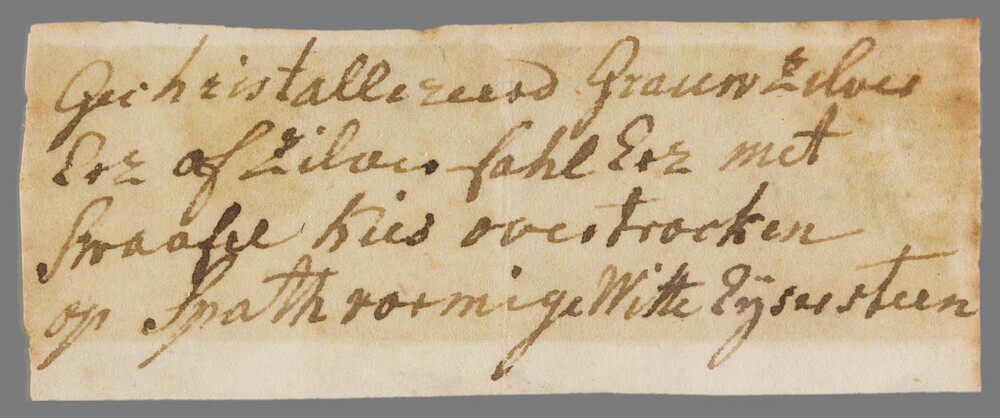 Gechristallizeerd Grauw Zilver
Erz of Zilver fahl Erz met
Swaafel Kies overtrocken
op Spathvormige Witte Eÿsersteen